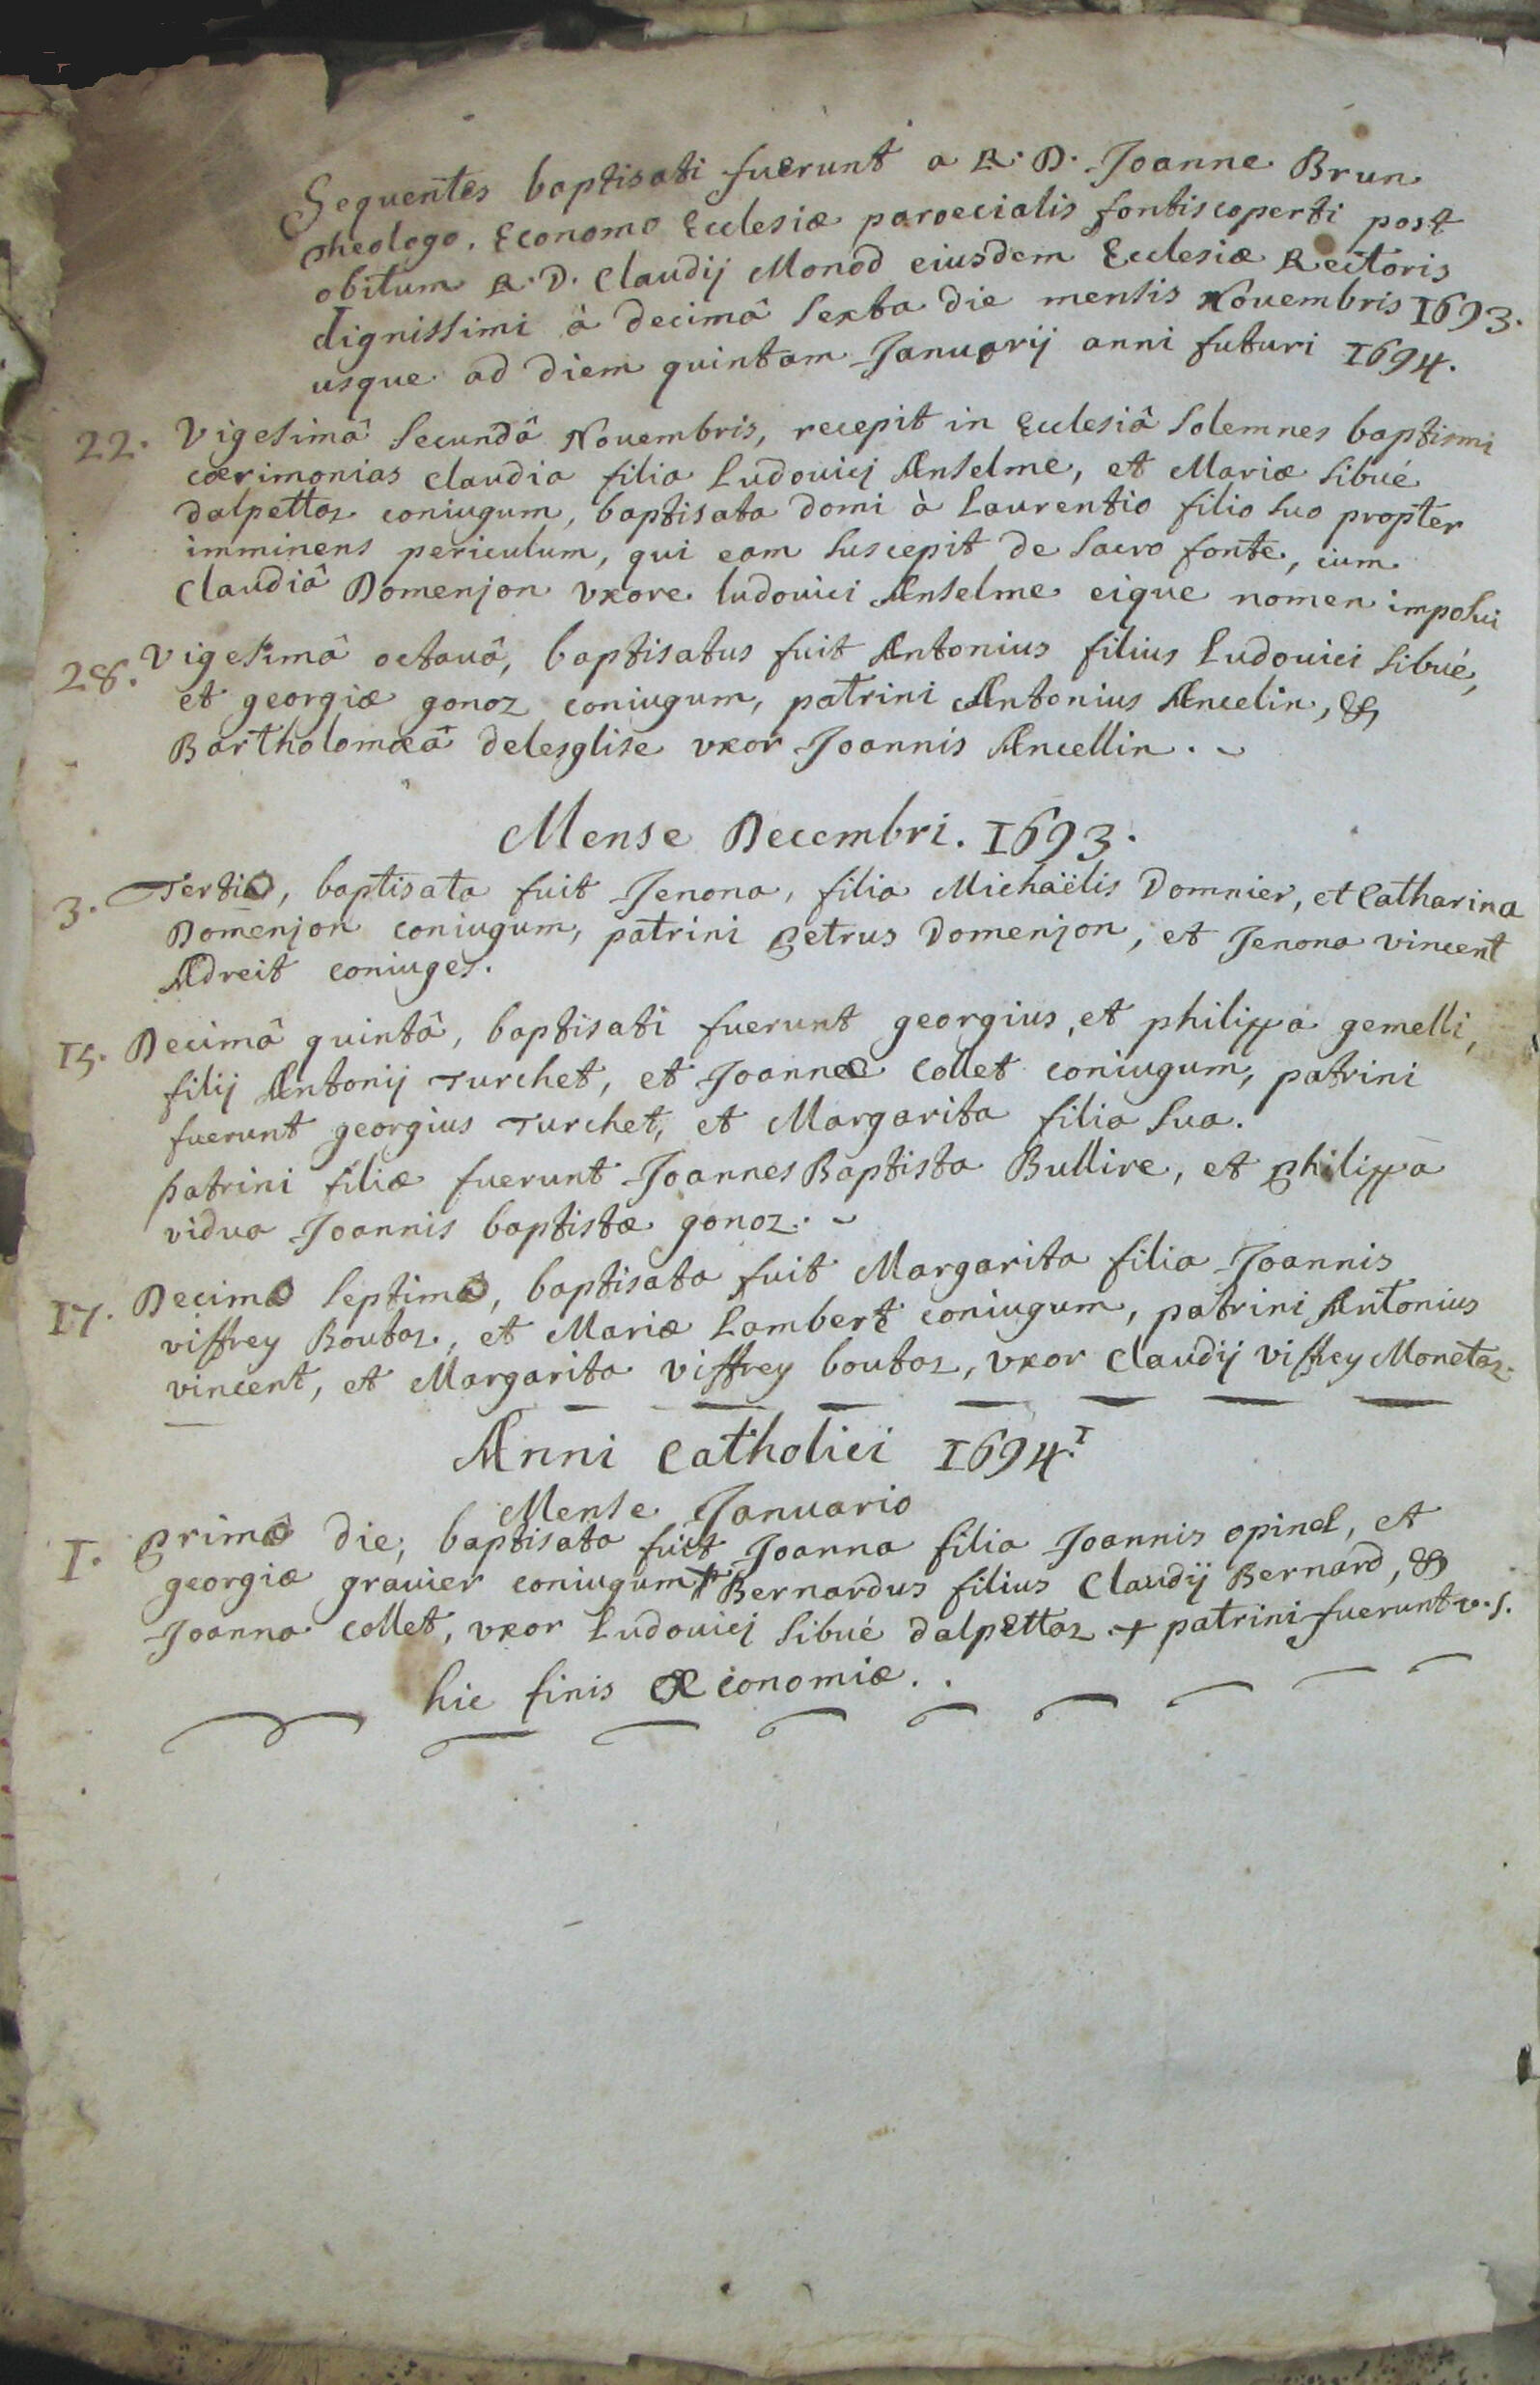 Sequentes baptisati fuerunt a R. D. Joanne Brun
Theologo, Economo Ecclesiæ paroecialis fontiscoperti post
obitum R. D. Claudij Monod eiusdem Ecclesiæ Rectoris
dignissimi à decimâ sexta die mensis Nouembris 1693.
usque ad diem quintam Januarij anni futuri 1694.
22. Vigesimâ secundâ Nouembris, recepit in Ecclesiâ solemnes baptismi
cærimonias claudia filia Ludouicj Anselme, et Mariæ sibué
dalpettaz coniugum, baptisata domi à Laurentio filio suo propter
imminens periculum, qui eam suscepit de sacro fonte, cum
Claudiâ Domenjon vxore ludouici Anselme eique nomen imposui
28. Vigesimâ octauâ, baptisatus fuit Antonius filius Ludouici sibué,
et georgiæ gonoz coniugum, patrini Antonius Ancelin, &
Bartholomæâ deleglise vxor Joannis Ancellin.
Mense Decembri. 1693.
3. Tertia, baptisata fuit Jenona, filia Michaëlis Domnier, et Catharina
Domenjon coniugum, patrini Petrus Domenjon, et Jenona vincent
Adreit coniuges.
15. Decimâ quintâ, baptisati fuerunt georgius, et philippa gemelli,
filij Antonij Turchet, et Joannæ Collet coniugum, patrini
fuerunt georgius Turchet, et Margarita filia sua.
patrini filiæ fuerunt Joannes Baptista Bullire, et Philippa
vidua Joannis baptistæ gonoz.
17. Decima septima, baptisata fuit Margarita filia Joannis
viffrey Boutaz, et Mariæ Lambert coniugum, patrini Antonius
vincent, et Margarita viffrey boutaz, vxor Claudij viffrey Monetaz.
Anni Catholici 1694.
Mense Januario
1. Prima die, baptisata fuit Joanna filia Joannis opinel, et
georgiæ grauier coniugum + Bernardus filius Claudij Bernard, &
Joanna Collet, vxor Ludouicj sibué dalpettaz + patrini fuerunt v. s.
hic finis œconomiæ.